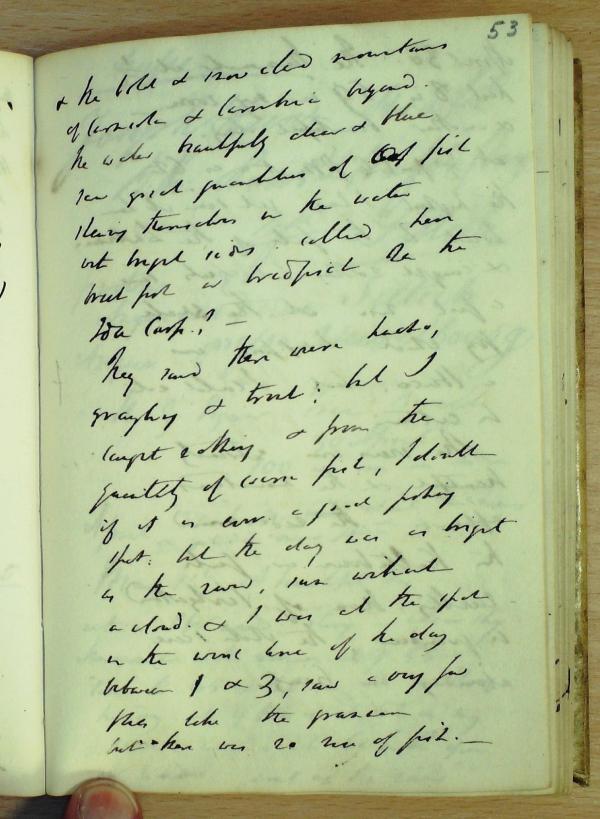 53
& the bold & snow clad mountains
of Carniola & Carinthia beyond.
the water beautifully clear & blue
saw great quantities of fish
themselves in the water
with bright sides. called here
or the
Carp.? —
They said there were hucho,
grayling & trout; but I
caught nothing & from the
quantity of coarse fish, I doubt
if it is ever a good fishing
spot: but the day was as bright
as the river, sun without
a cloud. & I was at the spot
in the worst time of the day
between 1 & 3, saw a very few
flies like the
but there was no rise of fish. —